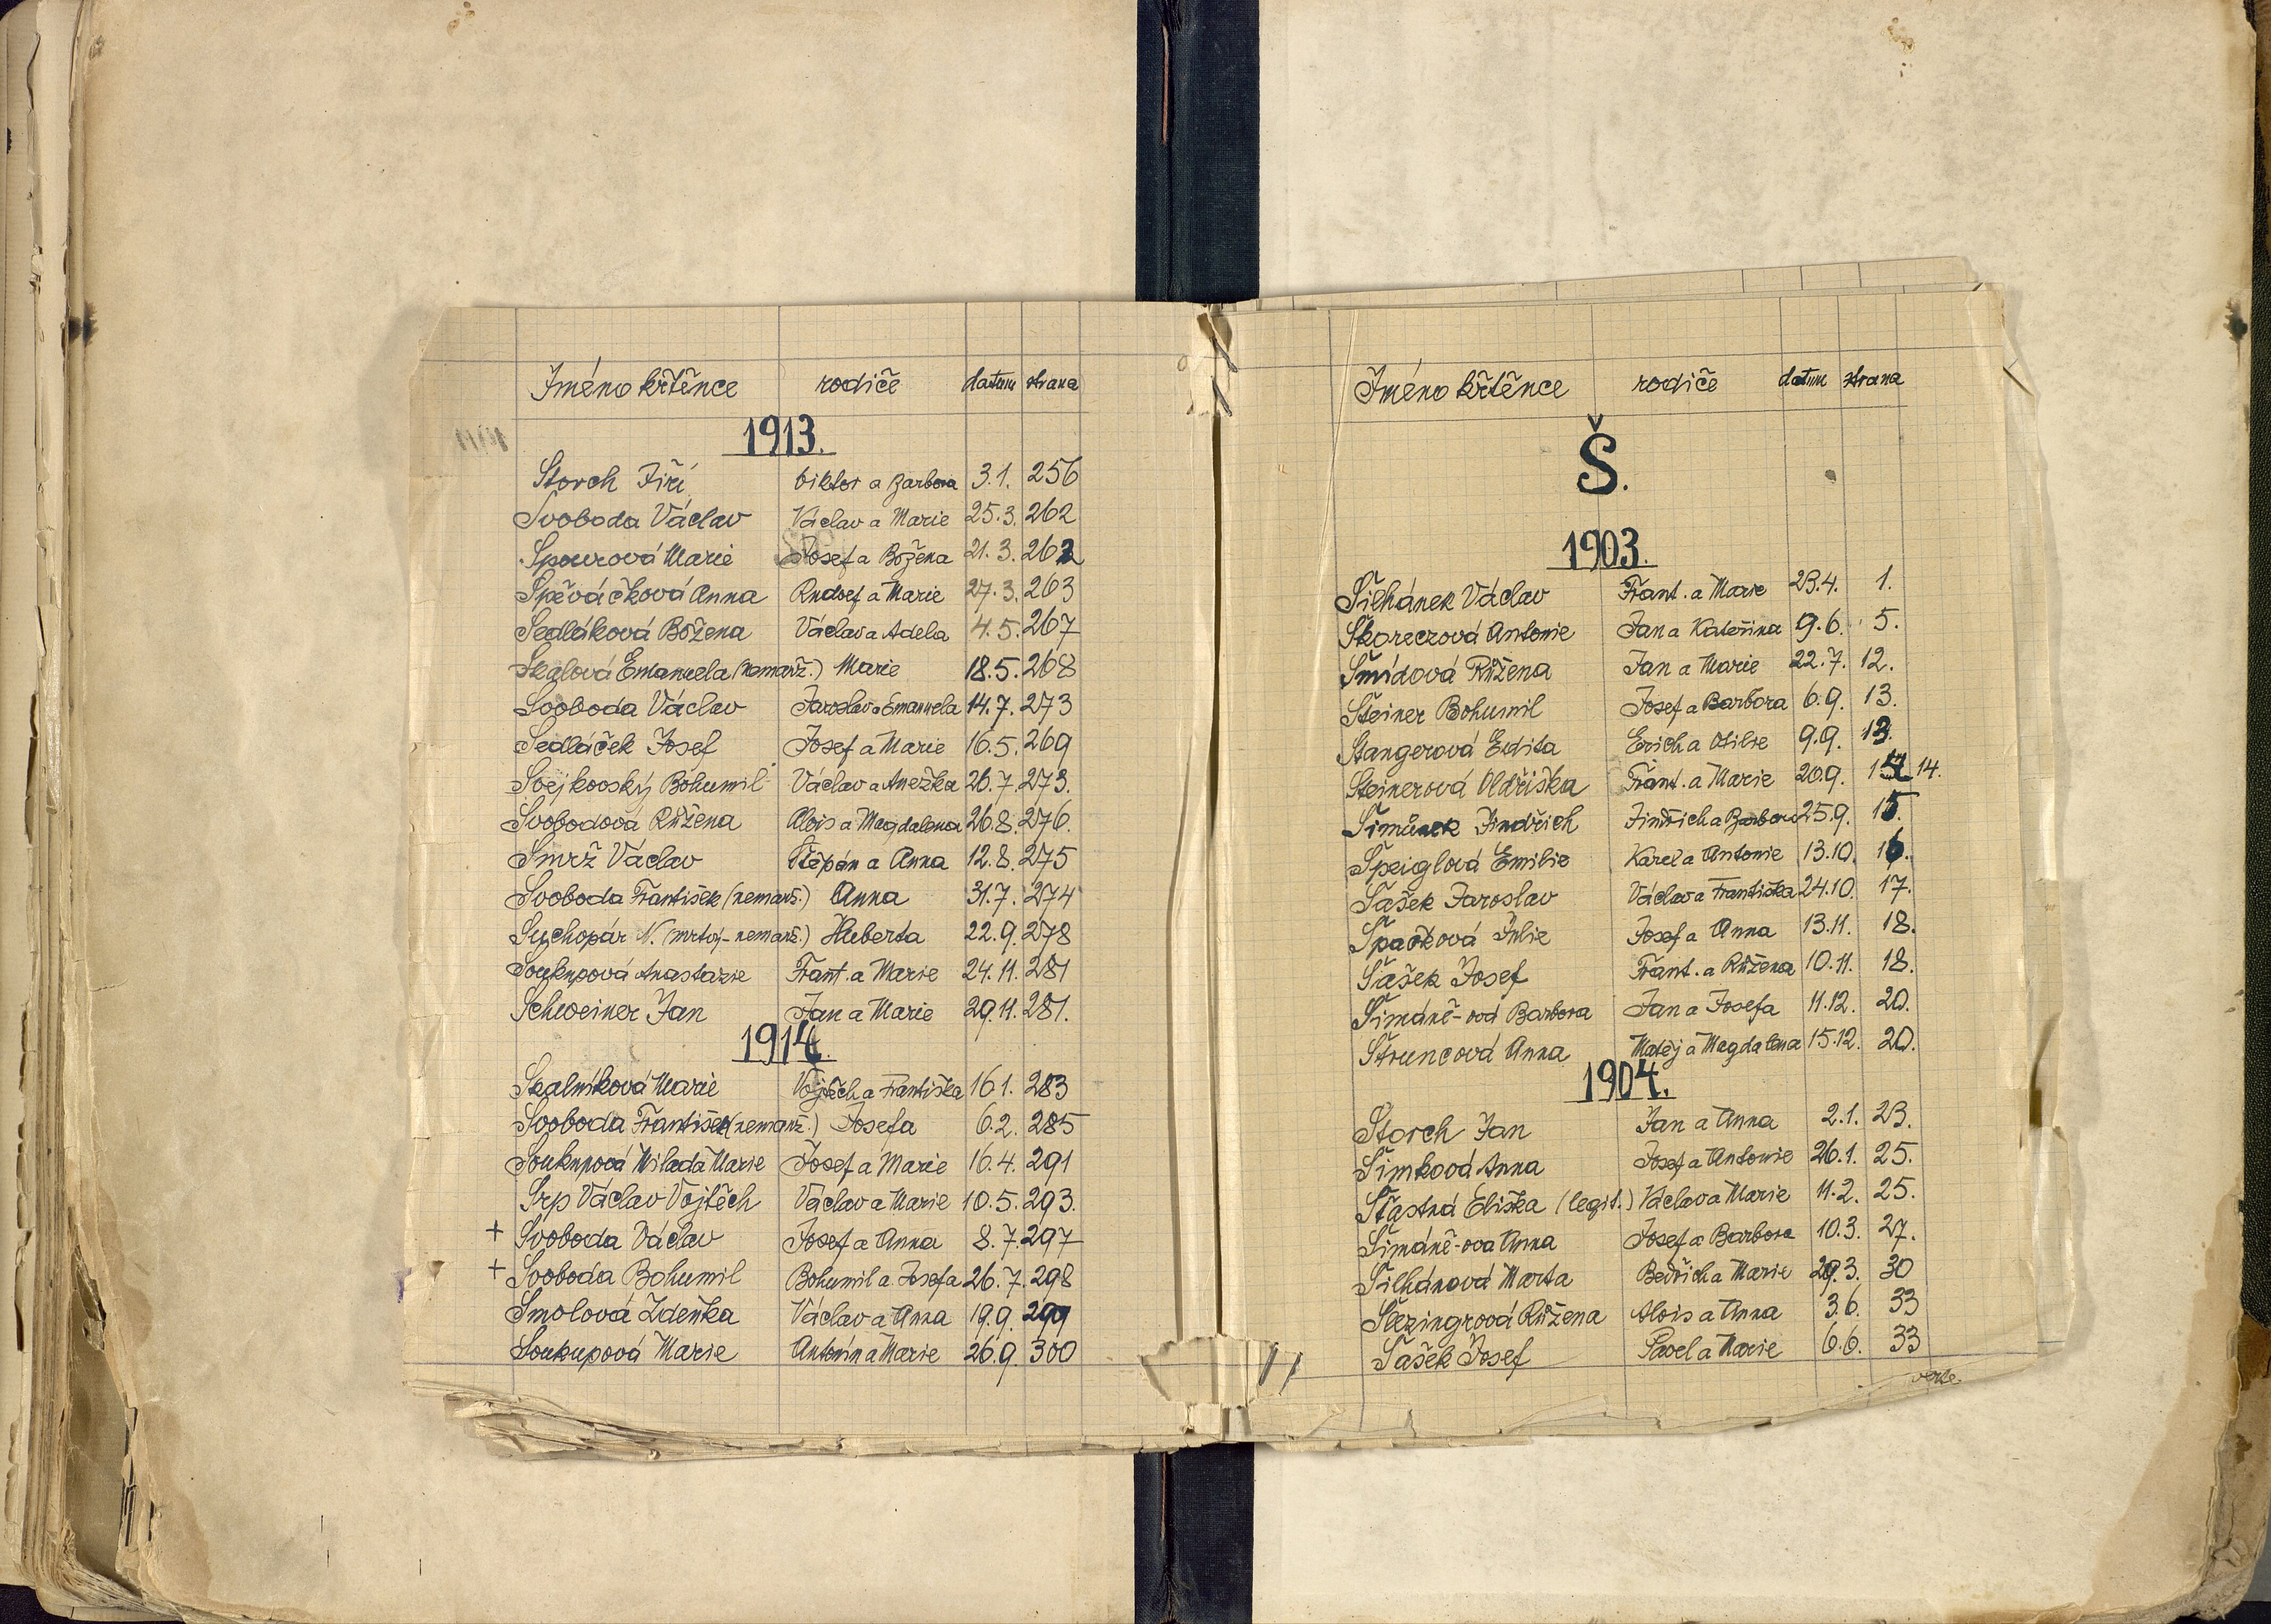 Jméno křtěnce rodiče datum strana
1913.
Storch Jiří Viktor a Barbora 3.1. 256
Svoboda Václav Václav a Marie 25.3. 262
Spourová Marie Josef a Božena 21.3. 262
Spěváčková Anna Rudolf a Marie 27.3. 263
Sedláková Božena Václav a Adela 4.5. 267
Skalová Emanuela (nemanž.) Marie 18.5. 268
Svoboda Václav Jaroslav a Emanuela 14.7. 273
Sedláček Josef Josef a Marie 16.5. 269
Svejkovský Bohumil Václav a Anežka 26.7. 273.
Svobodová Růžena Alois a Magdalena 26.8. 276.
Smrž Václav Štěpán a Anna 12.8. 275
Svoboda František (nemanž.) Anna 31.7. 274
Suchopár N. (mrtvý-nemanž.) Huberta 22.9. 278
Soukupová Anastazie Frant. a Marie 24.11. 281
Schweiner Jan Jan a Marie 29.11. 281.
1914.
Skalníková Marie Vojtěch a Františka 16.1. 283
Svoboda František (nemanž.) Josefa 6.2. 285
Soukupová Milada Marie Josef a Marie 16.4. 291
Srp Václav Vojtěch Václav a Marie 10.5. 293.
+ Svoboda Václav Josef a Anna 8.7. 297
+ Svoboda Bohumil Bohumil a Josefa 26.7. 298
Smolová Zdeňka Václav a Anna 19.9. 299
Soukupová Marie Antonín a Marie 26.9. 300
Jméno křtěnce rodiče datum strana
Š.
1903.
Šilhánek Václav Frant. a Marie 23.4. 1.
Škorecrová Antonie Jan a Kateřina 9.6. 5.
Šmídová Růžena Jan a Marie 22.7. 12.
Šteiner Bohumil Josef a Barbora 6.9. 13.
Štangerová Edita Erich a Otilie 9.9. 13.
Šteinerová Oldřiška Frant. a Marie 20.9. 14. 14.
Šimůnek Jindřich Jindřich a Barbora 25.9. 15.
Špeiglová Emilie Karel a Antonie 13.10. 16.
Šašek Jaroslav Václav a Františka 24.10. 17.
Špačková Julie Josef a Anna 13.11. 18.
Šašek Josef Frant. a Růžena 10.11. 18.
Šimáně-ová Barbora Jan a Josefa 11.12. 20.
Štruncová Anna Matěj a Magdalena 15.12. 20.
1904.
Štorch Jan Jan a Anna 2.1. 23.
Šimková Anna Josef a Antonie 26.1. 25.
Šťastná Eliška (legit.) Václav a Marie 11.2. 25.
Šimáně-ova Anna Josef a Barbora 10.3. 27.
Šilhánová Marta Bedřich a Marie 29.3. 30
Šlezingrová Růžena Alois a Anna 3.6. 33
Šašek Josef Pavel a Marie 6.6. 33
verte.